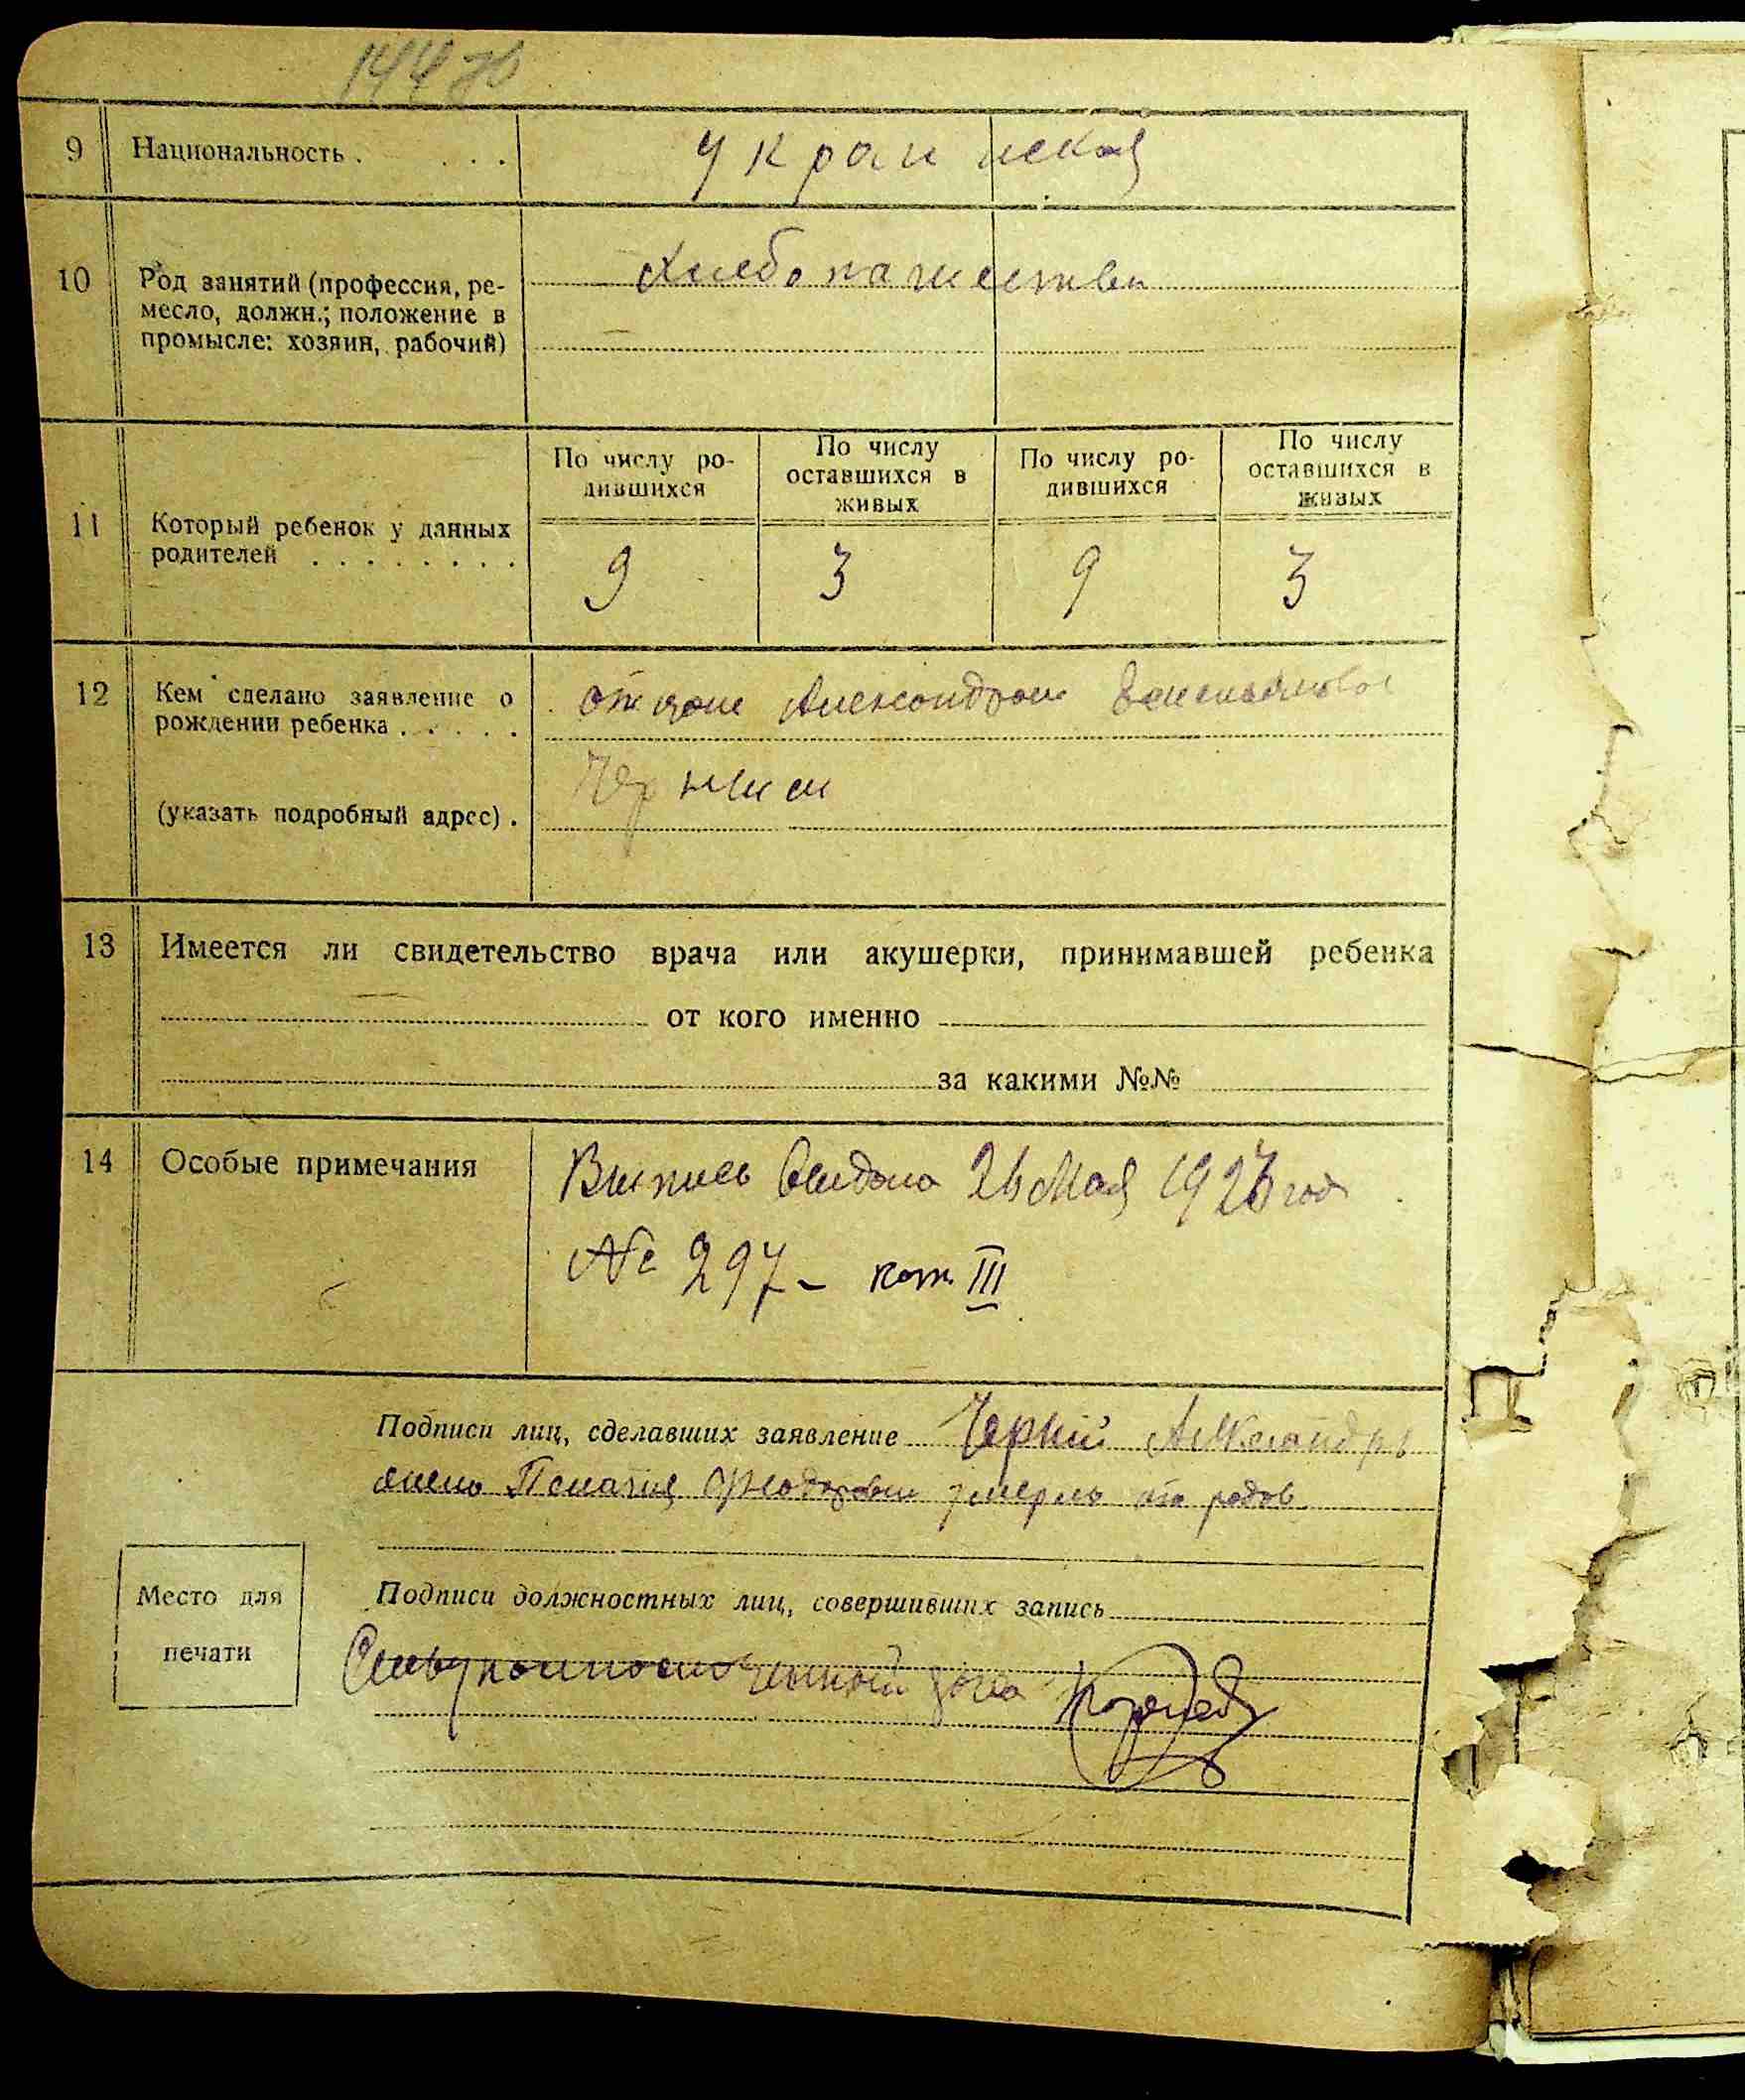 144 об
9 Национальность . . . . украинская
10 Род занятий (профессия, ре-
месло, должн.; положение в
промысле: хозяин, рабочий)
Хлебопашество
По числу ро-
дившихся
По числу
оставшихся в
живых
По числу ро-
дившихся
По числу
оставшихся в
живых
11 Который ребенок у данных
родителей . . . . . . . .
9 3 9 3
12 Кем сделано заявление о
рождении ребенка . . . . .
отцом Александром
(указать подробный адрес) .
Черным
13 Имеется ли свидетельство врача или акушерки, принимавшей ребенка
от кого именно
за какими №№
14 Особые примечания
Выпись выдана 26 Мая 192 год
№ 297 - кат III
Подписи лиц, сделавших заявление Черный Александр
Пелагия умерла от родов
Место для
печати
Подписи должностных лиц, совершивших запись